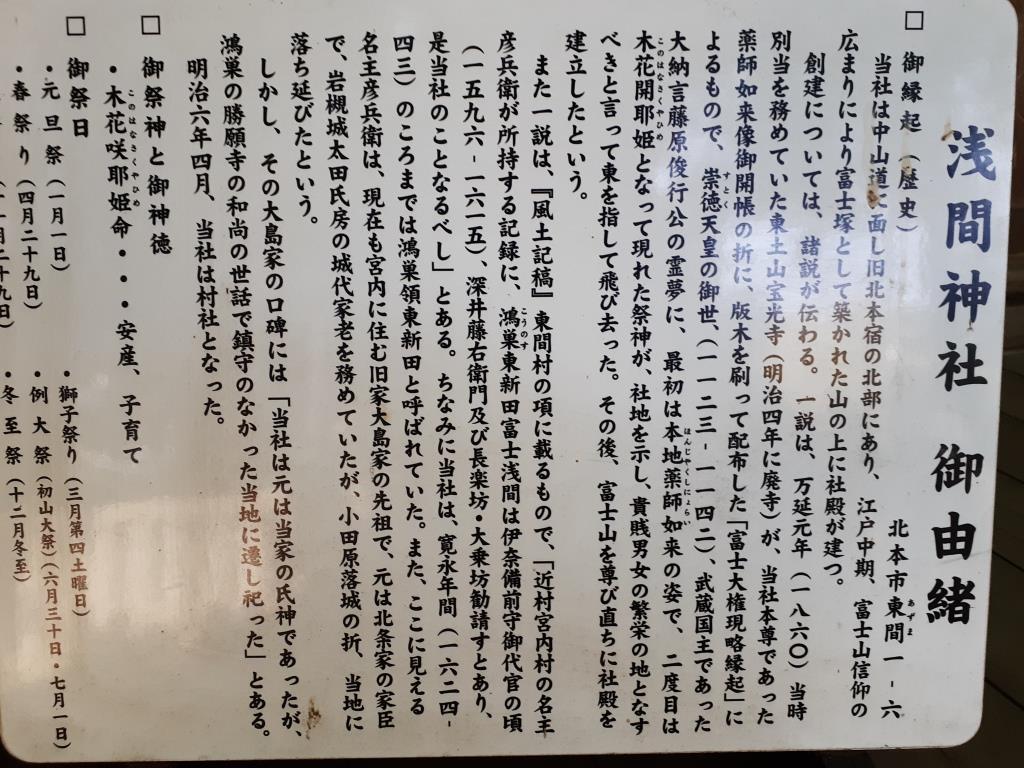 浅間神社 御由緒
北本市東間一-六
□ 御縁起(歴史)
当社は中山道に面し旧北本宿の北部にあり、江戸中期、富士山信仰の
広まりにより富士塚として築かれた山の上に社殿が建つ。
創建については、諸説が伝わる。一説は、万延元年(一八六〇)当時
別当を務めていた東土山宝光寺(明治四年に廃寺)が、当社本尊であった
薬師如来像御開帳の折に、版木を刷って配布した「富士大権現略縁起」に
よるもので、崇徳天皇の御世、(一一二三-一一四二)、武蔵国主であった
大納言藤原俊行公の霊夢に、最初は本地薬師如来の姿で、二度目は
木花開耶姫となって現れた祭神が、社地を示し、貴賎男女の繁栄の地となす
べきと言って東を指して飛び去った。その後、富士山を尊び直ちに社殿を
建立したという。
また一説は、『風土記稿』東間村の項に載るもので、「近村宮内村の名主
彦兵衛が所持する記録に、鴻巣東新田富士浅間は伊奈備前守御代官の頃
(一五九六-一六一五)、深井藤右衛門及び長楽坊・大乗坊勧請すとあり、
是当社のことなるべし」とある。ちなみに当社は、寛永年間(一六二四-
四三)のころまでは鴻巣領東新田と呼ばれていた。また、ここに見える
名主彦兵衛は、現在も宮内に住む旧家大島家の先祖で、元は北条家の家臣
で、岩槻城太田氏房の城代家老を務めていたが、小田原落城の折、当地に
落ち延びたという。
しかし、その大島家の口碑には「当社は元は当家の氏神であったが、
鴻巣の勝願寺の和尚の世話で鎮守のなかった当地に遷し祀った」とある。
明治六年四月、当社は村社となった。
□ 御祭神と御神徳
・木花咲耶姫命・・・安産、子育て
□ 御祭日
・獅子祭り(三月第四土曜日)
・元旦祭(一月一日)
・例大祭(初山大祭)(六月三十日・七月一日)
・春祭り(四月二十九日)
・冬至祭(十二月冬至)